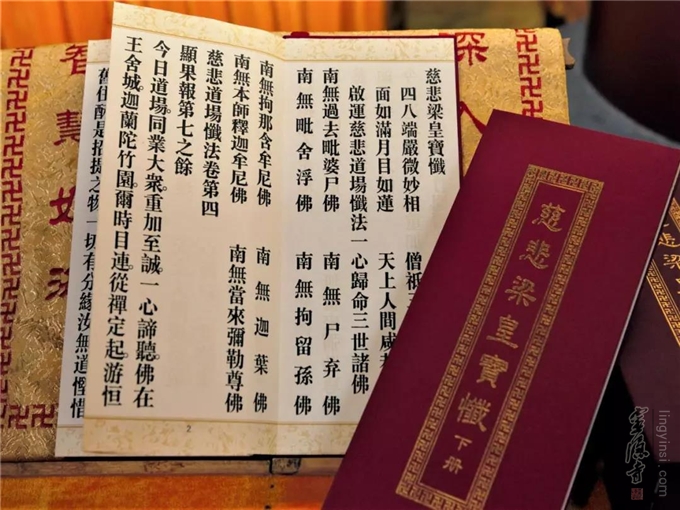 深入
慈悲梁皇寶懺
四八端嚴微妙相 僧祇
面如滿月目如蓮 天上人間咸
啟運慈悲道場懺法一心歸命三世諸佛
南無過去毗婆尸佛 南無尸弃佛
南無毗舍浮佛 南無拘留孫佛
南無拘那含牟尼佛 南無迦葉佛
南無本師釋迦牟尼佛 南無當來彌勒尊佛
慈悲道場懺法卷第四
顯果報第七之餘
今日道場。同業大眾。重加至誠。一心諦聽。佛在
王舍城。迦蘭陀竹園。爾時目連。從禪定起。游恒
2
是招提之物。一切有分緣汝無道慳惜
智慧如海
慈悲梁皇寶懺 下册
慈悲梁
靈隱寺
lingyinsi.com